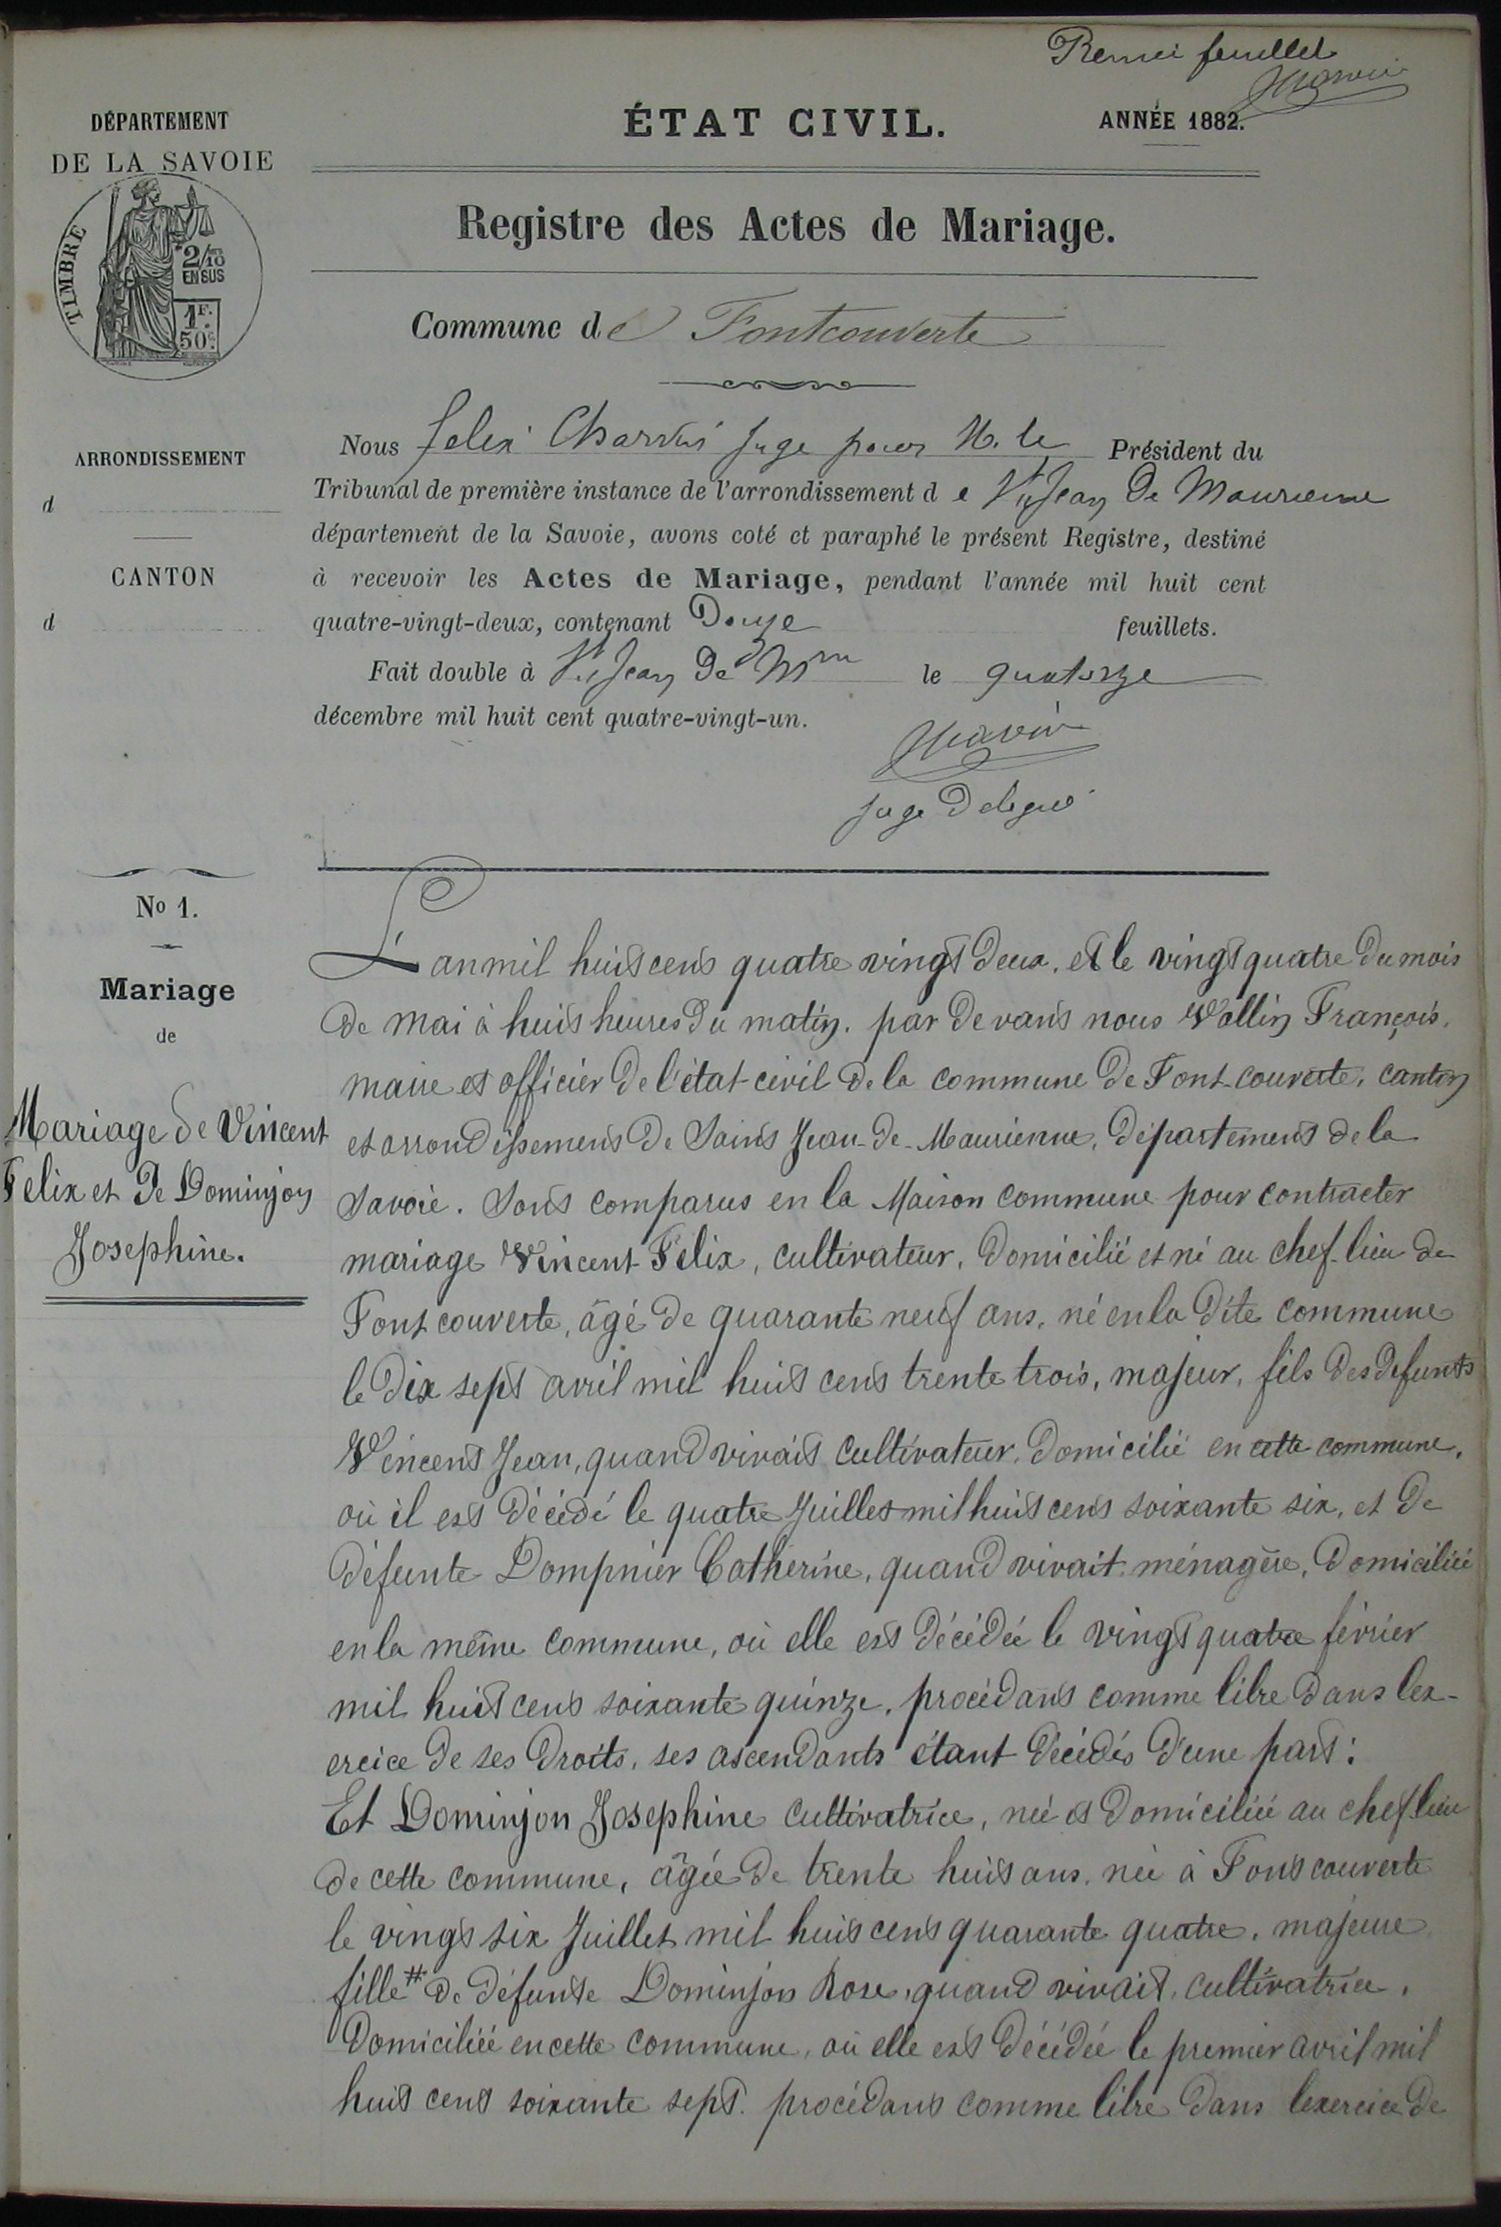 feuillet
DÉPARTEMENT
DE LA SAVOIE
ÉTAT CIVIL.
ANNÉE 1882.
TIMBRE
2/10
EN SUS
1F.
50c.
Registre des Actes de Mariage.
Commune de Fontcouverte
ARRONDISSEMENT
d
CANTON
d
Nous felix juge pour M. le Président du
Tribunal de première instance de l'arrondissement de St Jean De Maurienne
département de la Savoie, avons coté et paraphé le présent Registre, destiné
à recevoir les Actes de Mariage, pendant l'année mil huit cent
quatre-vingt-deux, contenant Douze feuillets.
Fait double à St Jean De Mne le quatorze
décembre mil huit cent quatre-vingt-un.
juge Delegué
No 1.
Mariage
de
Mariage de Vincent
Felix et De Dominjon
Josephine.
L'an mil huit cent quatre vingt deux, et le vingt quatre du mois
de mai à huit heures du matin. par devant nous Vallin François,
maire et officier de l'état civil de la commune de Font couverte, canton
et arrondissement de Saint Jean-de-Maurienne, département de la
Savoie. Sont comparus en la Maison commune pour contracter
mariage Vincent Félix, cultivateur, domicilié et né au chef-lieu de
Font couverte, âgé de quarante neuf ans, né en la dite commune
le dix sept avril mil huit cent trente trois, majeur, fils des defunts
Vincent Jean, quand vivait cultivateur, domicilié en cette commune,
où il est décédé le quatre Juillet mil huit cent soixante six, et de
défunte Dompnier Catherine, quand vivait ménagère, domiciliée
en la même commune, où elle est décédée le vingt quatre février
mil huit cent soixante quinze, procédant comme libre dans lex-
ercice de ses droits, ses ascendants étant décédés d'une part:
Et Dominjon Josephine cultivatrice, née et domiciliée au chef lieu
de cette commune, âgée de trente huit ans, née à Font couverte
le vingt six Juillet mil huit cent quarante quatre, majeure
fille # de défunte Dominjon Rose, quand vivait, cultivatrice,
domiciliée en cette commune, où elle est décédée le premier avril mil
huit cent soixante sept. procédant comme libre dans lexercice de